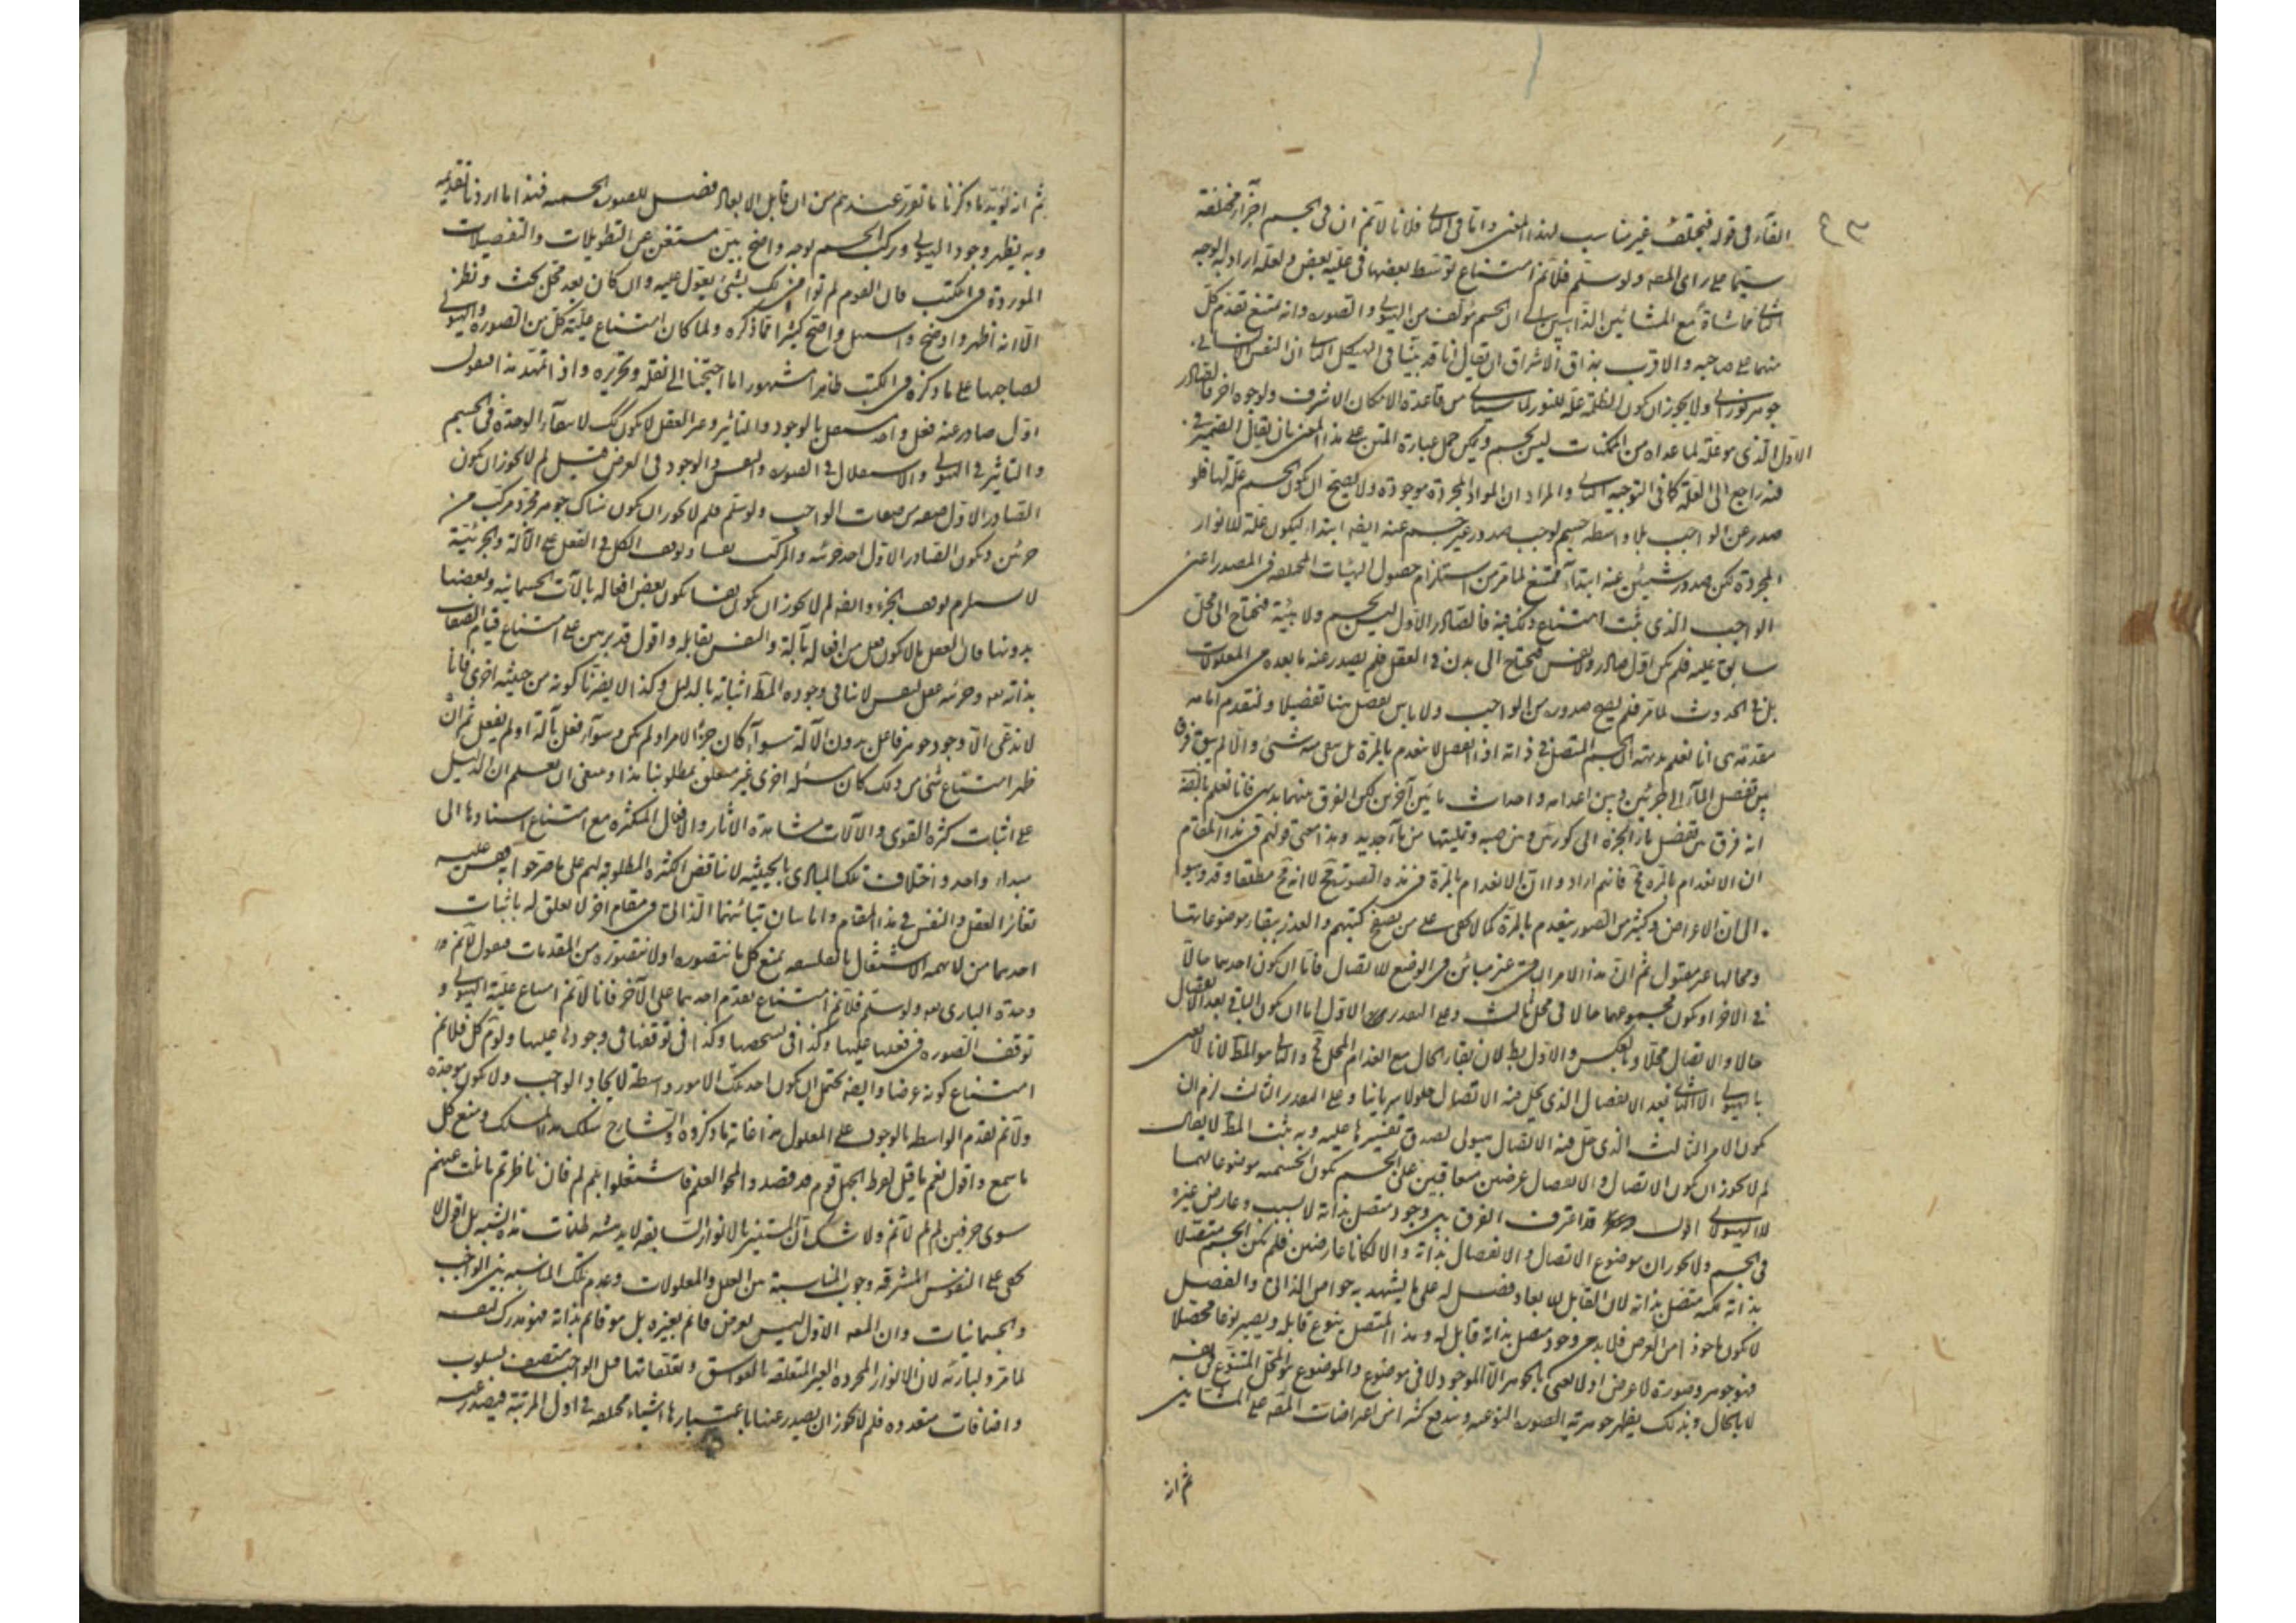 الفاء في قوله فيختلف غير مناسب لهذا المعنى واما في الثاني فلانا لا نم ان في الجسم اجزاء مختلفة
سيما على راى المصـ ولو سلم فلا نم امتناع توسط بعضها في علية بعض ولعله اراد بالوجه
الثاني مماشاة مع المشائين الذاهبين الى ان الجسم مؤلف من الهيولى والصورة وانه يمتنع تقدم كل
منهما على صاحبه والاقرب بمذاق الاشراق ان يقال انا قد بينا في الهيكل الثاني ان النفس الانسانى
جوهر نورانى ولا يجوز ان كون الظلمة علة للنور لما سيأتى من قاعدة الامكان الاشرف ولوجوه اخر فالصادر
الاول الذى هو علة لما عداه من الممكنات ليس بجسم ويمكن حمل عبارة المتن على هذا المعنى بان يقال الضمير في
منه راجع الى العلة كما في التوجيه الثانى والمراد ان المواد المجردة موجودة ولا يصح ان يكون الجسم علة لها فلو
صدر عن الواجب بلا واسطه جسم لوجب صدور غير جسم عنه ايضه ابتداء ليكون علة للانوار
المجردة لكن صدور شيئين عنه ابتداء ممتنع لما مر من استلزام حصول الهيئات المختلفه في المصدر اعنى
الواجب الذى ثبت امتناع ذلك فيه فالصادر الاول ليس بجسم ولا هيئة فتحتاج الى محل
سابق عليه فلم يكن اول صادر ولا نفس فيحتاج الى بدن في العقل فلم يصدر عنه ما بعده من المعلولات
بل في الحدوث لما مر فلم يصح صدوره من الواجب ولا باس بفصل هنا تفصيلا ولنقدم امامه
مقدمة هى انا نعلم بديهة ان الجسم المتصل في ذاته اذا انفصل لا ينعدم بالمرة بل يبقى منه شئ والا لم يبق فرق
بين تفصل الماء الى جزئين وبين اعدامه واحداث مائين آخرين لكن الفرق بينهما بديهى فانا نعلم بالبديهة
انه فرق بين تفصل ماء الجرة الى كوزين وبين صبه وتمليتها من ماء جديد وهذا معنى قولهم في هذا المقام
ان الانعدام بالمرة مح فانهم ارادوا ان الانعدام بالمرة في هذه الصورة مح لا انه مح مطلقا وقد ذهبوا
الى ان الاعراض وكثير من الصور ينعدم بالمرة كما لا يخفى على من يصفح كتبهم والعذر ببقاء موضوعاتها
ومحالها غير مقبول ثم ان هذا الامر الباقى غير مبائن في الوضع للاتصال فاما ان يكون احدهما حالا
في الاخر او يكون مجموعهما حالا في محل ثالث وعلى التقدير الاول اما ان يكون الباقى بعد الانفصال
حالا والاتصال محلا وبالعكس والاول بط لان بقاء الحال مع انعدام المحل مح والثانى هو المط لانا لا نعنى
بالهيولى الا الباقى بعد الانفصال الذى يحل فيه الاتصال حلولا سريانيا وعلى التقدير الثالث لزم ان
يكون الامر الثالث الذى حل فيه الاتصال هيولى لصدق تفسيرها عليه وبه يثبت المط لا يقال
لم لا يجوز ان يكون الاتصال والانفصال عرضين متعاقبين على الجسم يكون الجسمية موضوعا لهما
لا الهيولى لانا نقول قد اعترف الفرق بين وجود متصل بذاته لا بسبب وعارض غيره
في الجسم ولا يجوز ان موضوع الاتصال والانفصال بذاته والا لكانا عارضين فلم يكن الجسم متصلا
بذاته لكنه متصل بذاته لان القابل للابعاد فصل له على ما يشهد به خواص الذاتى والفصل
لا يكون ماخوذا من العرض فلا بد من وجود متصل بذاته قابل له وهذا المتصل ينوع قابله ويصير نوعا محصلا
فهو جوهر وصورة لا عرض اذ لا نعنى بالجوهر الا الموجود لا في موضوع والموضوع هو المحل المتنوع بنفسه
لا بالحال وبذلك يظهر جوهرية الصورة النوعية ويندفع كثير من اعتراضات المصـ على المشائين
ثم انه
ثم انه يؤيد ما ذكرنا ما تقرر عندهم من ان قابل الابعاد فصل للصورة الجسمية فهذا ما اردنا تقديمه
وبه يظهر وجود الهيولى وتركب الجسم بوجه واضح بيّن مستغن عن التطويلات والتفصيلات
الموردة في الكتب فان القوم لم ثوا في ذلك بشئ يعول عليه وان كان بعد محل بحث ونظر
الا انه اظهر واوضح واسهل واصح كثيرا مما ذكره ولما كان امتناع علية كل من الصورة والهيولى
لصاحبها على ما ذكره في الكتب ظاهرا مشهورا ما احتجنا الى نقله وتحريره واذ تمهد هذا فنقول
اول صادر عنه فعل واحد مستقل بالوجود والتاثير وغير العقل لا يكون كك لانتفاء الوحدة في الجسم
والتاثير في الهيولى والاستقلال في الصورة والنفس والوجود في العرض فان قيل لم لا يجوز ان يكون
الصادر الاول صفة من صفات الواجب ولو سلم فلم لا يجوز ان يكون هناك جوهر مجرد مركب من
جزئين ويكون الصادر الاول احد جزئيه والمركب نفسا وتوقف الكل في الفعل على الآلة والجزئية
لا يستلزم توقف الجزء وايضه لم لا يجوز ان يكون نفسا يكون بعض افعاله بالآلات الجسمانية وبعضها
بدونها فان العقل ما لا يكون فعل من افعاله بآلة والنفس يقابله واقول قد برهن على امتناع قيام الصفات
بذاته تعه وجزئية عقل لنفس لا ينافى وجوده المط اثباته بالدليل وكذا لا يضرنا كونه من حيثية اخرى فانا
لا ندعى الا وجود جوهر فاعل بدون الآلة سواء كان جزءا لامر او لم يكن وسواء فعل بآلة او لم يفعل ثم ان
ظهر امتناع شئ من ذلك كان مسئلة اخرى غير متعلق بمطلوبنا هذا وينبغى ان يعلم ان الدليل
على اثبات كثرة القوى والآلات مشاهدة الاثار والافعال المتكثره مع امتناع استنادها الى
مبداء واحد واختلاف تلك المبادى بالحيثية لا يناقض الكثره المطلوبة لهم على ما صرحوا به فقس عليه
تغائر العقل والنفس في هذا المقام واما بيان تبائنهما الذاتى ففى مقام اخر لا تعلق له باثبات
احدهما ومن لا يهمه الاشتغال بالفلسفه يمنع كل ما يتصوره او لا يتصوره من المقدمات فيقول لا نم
وحدة البارى تعه ولو سلم فلا نم امتناع تقدم احدهما على الآخر فانا لا نم امتناع علية الهيولى و
توقف الصورة في فعلها عليها وكذا في تشخصها وكذا في توقفها في وجودها عليها ولو تم كل فلا نم
امتناع كونه عرضا وايضه يحتمل ان يكون احد تلك الامور واسطة لايجاد الواجب ولا يكون موجدة
ولا نم تقدم الواسطه بالوجود على المعلول هذا غاية ما ذكروه والشارح سلك هذا المسلك ومنع كل
ما سمع واقول نعم ما قيل لفرط الجهل قوم قد قصدوا لمحو العلم فاشتغلوا بلم لم فان ناظرتهم ما نلت عنهم
سوى حرفين لم لم لا نم ولا شك ان المستنير بالانوار السابقه لا يدهشه ظلمات هذه الشبه بل اقول لا
يخفى على النفوس المشرقه وجوب المناسبة بين العلل والمعلولات وعدم تلك المناسبه بين الواجب
والجسمانيات وان المعه الاول ليس بعرض قائم بغيره بل هو قائم بذاته فهو مدرك لنفسه
لما مر ولبارئه لان الانوار المجرده الغير المتعلقه بالغواسق وتعلقاتها فان الواجب متصف بسلوب
واضافات متعدده فلم لا يجوز ان يصدر عنها باعتبارها اشياء مختلفه في اول المرتبة فيصدر عنه